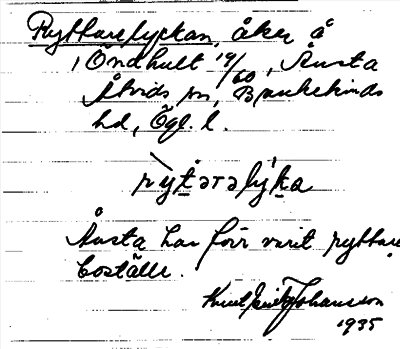 Ryttarelyckan, åker å
i Öndhult 19/60, Ånsta
Åtvids sn, Bankekinds
hd, Ögl. l.
rytərəlyka
Ånsta har förr varit ryttare
boställe.
Knut Johansson
1935